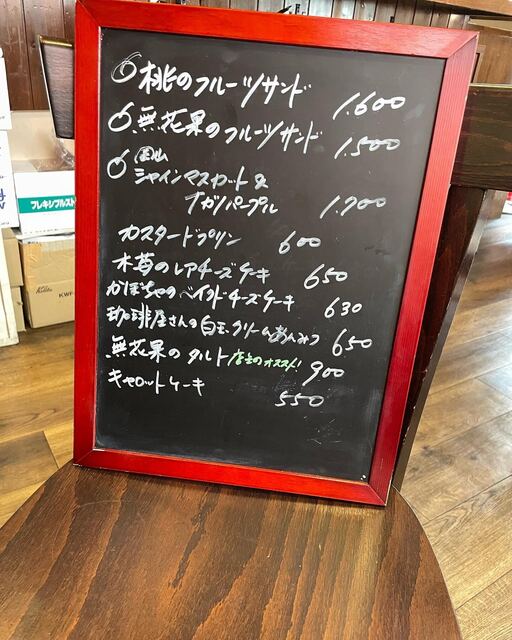 桃のフルーツサンド 1.600
無花果のフルーツサンド 1.500
岡山
シャインマスカット&
ナガノパープル 1.700
カスタードプリン 600
木苺のレアチーズケーキ 650
かぼちゃのベイクドチーズケーキ 630
珈琲屋さんの白玉クリームあんみつ 650
無花果のタルト 店主のオススメ! 900
キャロットケーキ 550
フレキシブルスト
Kalita
KWF